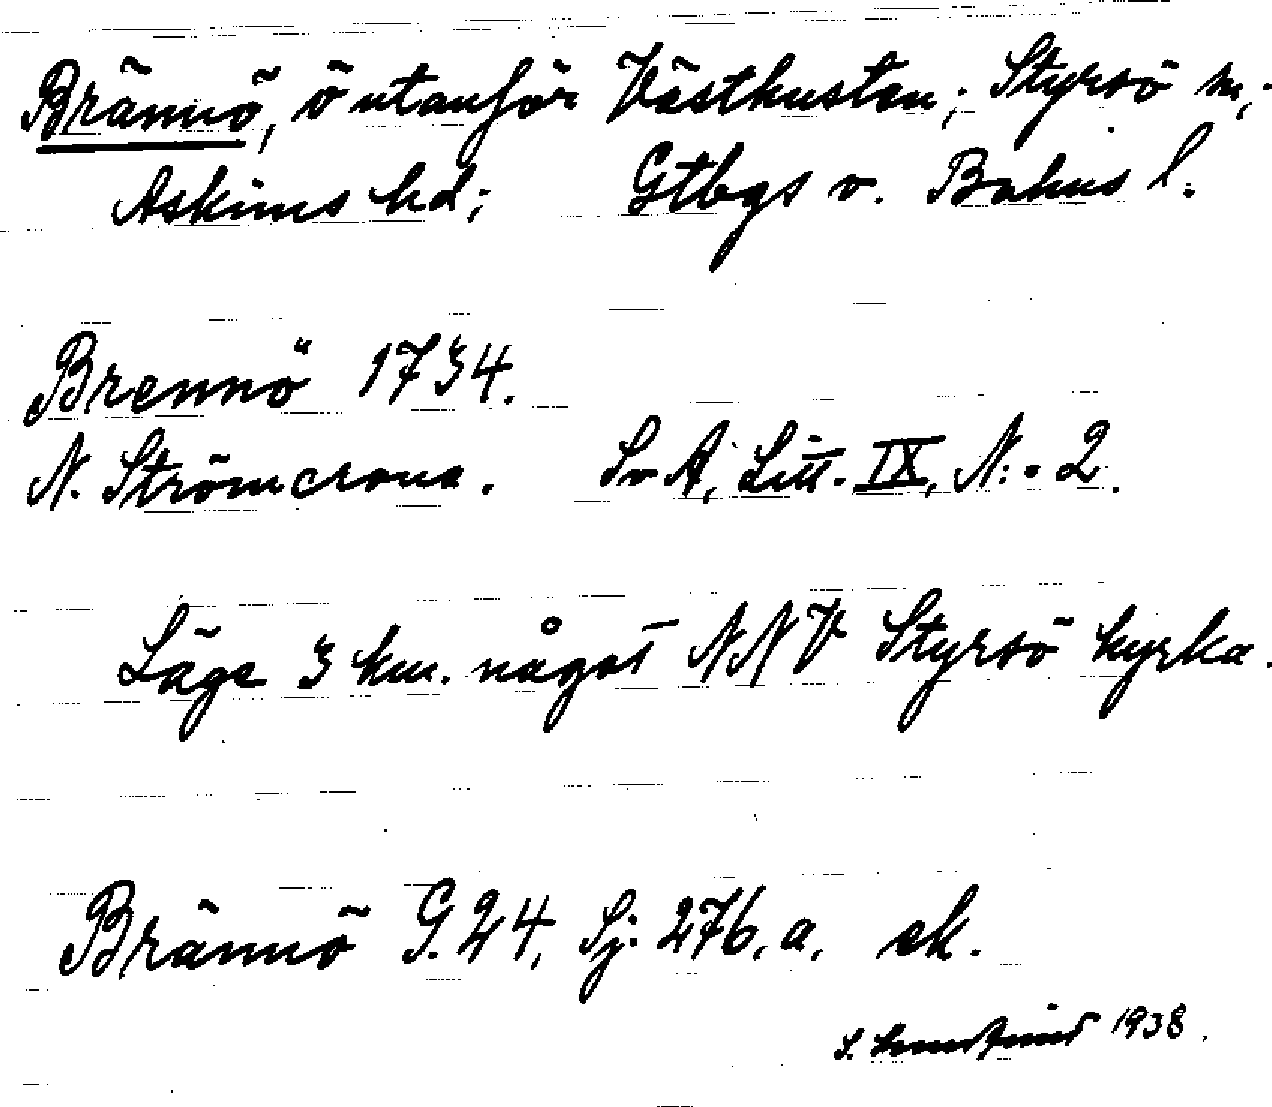 Brännö, ö utanför Västkusten; Styrsö sn;
Askims hd; Gtbgs o. Bohus l.
Brennö 1734.
N. Strömcrona. Sv A, Litt. IX, N:o 2.
Läge 3 km. något NNV Styrsö kyrka.
Brännö G. 24, Sj. 276. a. ek.
S. 1938.